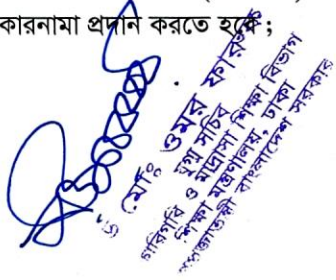 কারনামা প্রদান করতে হবে ;
মোঃ ওমর ফারুক
যুগ্ম সচিব
কারিগরি ও মাদ্রাসা শিক্ষা বিভাগ
শিক্ষা মন্ত্রণালয়, ঢাকা
গণপ্রজাতন্ত্রী বাংলাদেশ সরকার